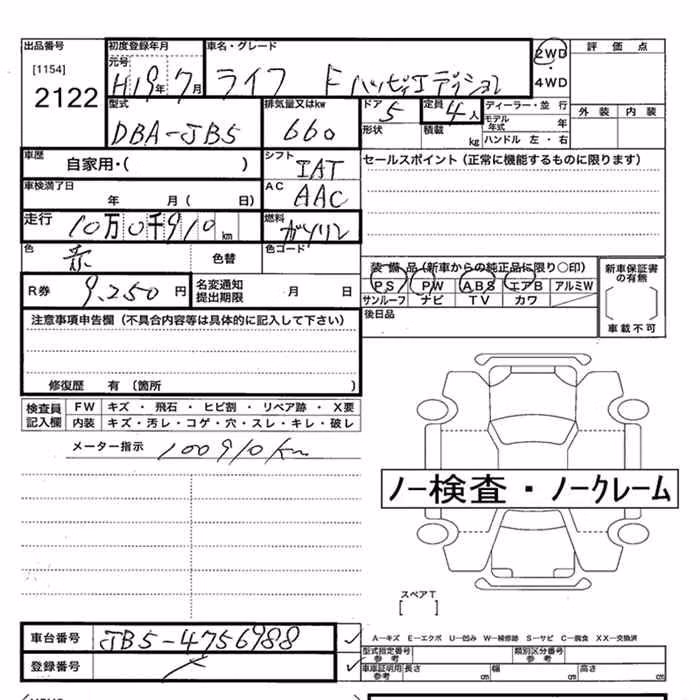 出品番号 初度登録年月 車名・グレード 評価点
[1154] 元号 2WD
2122 H19年 7月 ライフ F ハッピィエディション ・
4WD
型式 排気量又はkw ドア 定員 ディーラー・並行 外装 内装
DBA-JB5 660 5 4人 モデル年式 年
形状 積載 kg ハンドル 左・右
車歴 自家用・( ) シフト IAT セールスポイント(正常に機能するものに限ります)
車検満了日 年 月( 日) AC AAC
走行 10万0千910km 燃料 ガソリン
色 赤 色替 色コード 装備品(新車からの純正品に限り○印) 新車保証書の有無
R券 9,250円 名変通知提出期限 月 日 PS PW ABS エアB アルミW
サンルーフ ナビ TV カワ
注意事項申告欄(不具合内容等は具体的に記入して下さい) 後日品 車載不可
修復歴 有(箇所 )
検査員 FW キズ・飛石・ヒビ割・リペア跡・X要
記入欄 内装 キズ・汚レ・コゲ・穴・スレ・キレ・破レ
メーター指示 100910km
ノー検査・ノークレーム
スペアT
[ ]
車台番号 JB5-4756988 A-キズ E-エクボ U-凹み W-補修跡 S-サビ C-腐食 XX-交換済
登録番号 型式指定番号 参考 類別区分番号 参考
車庫証明用 参考 長さ cm 幅 cm 高さ cm